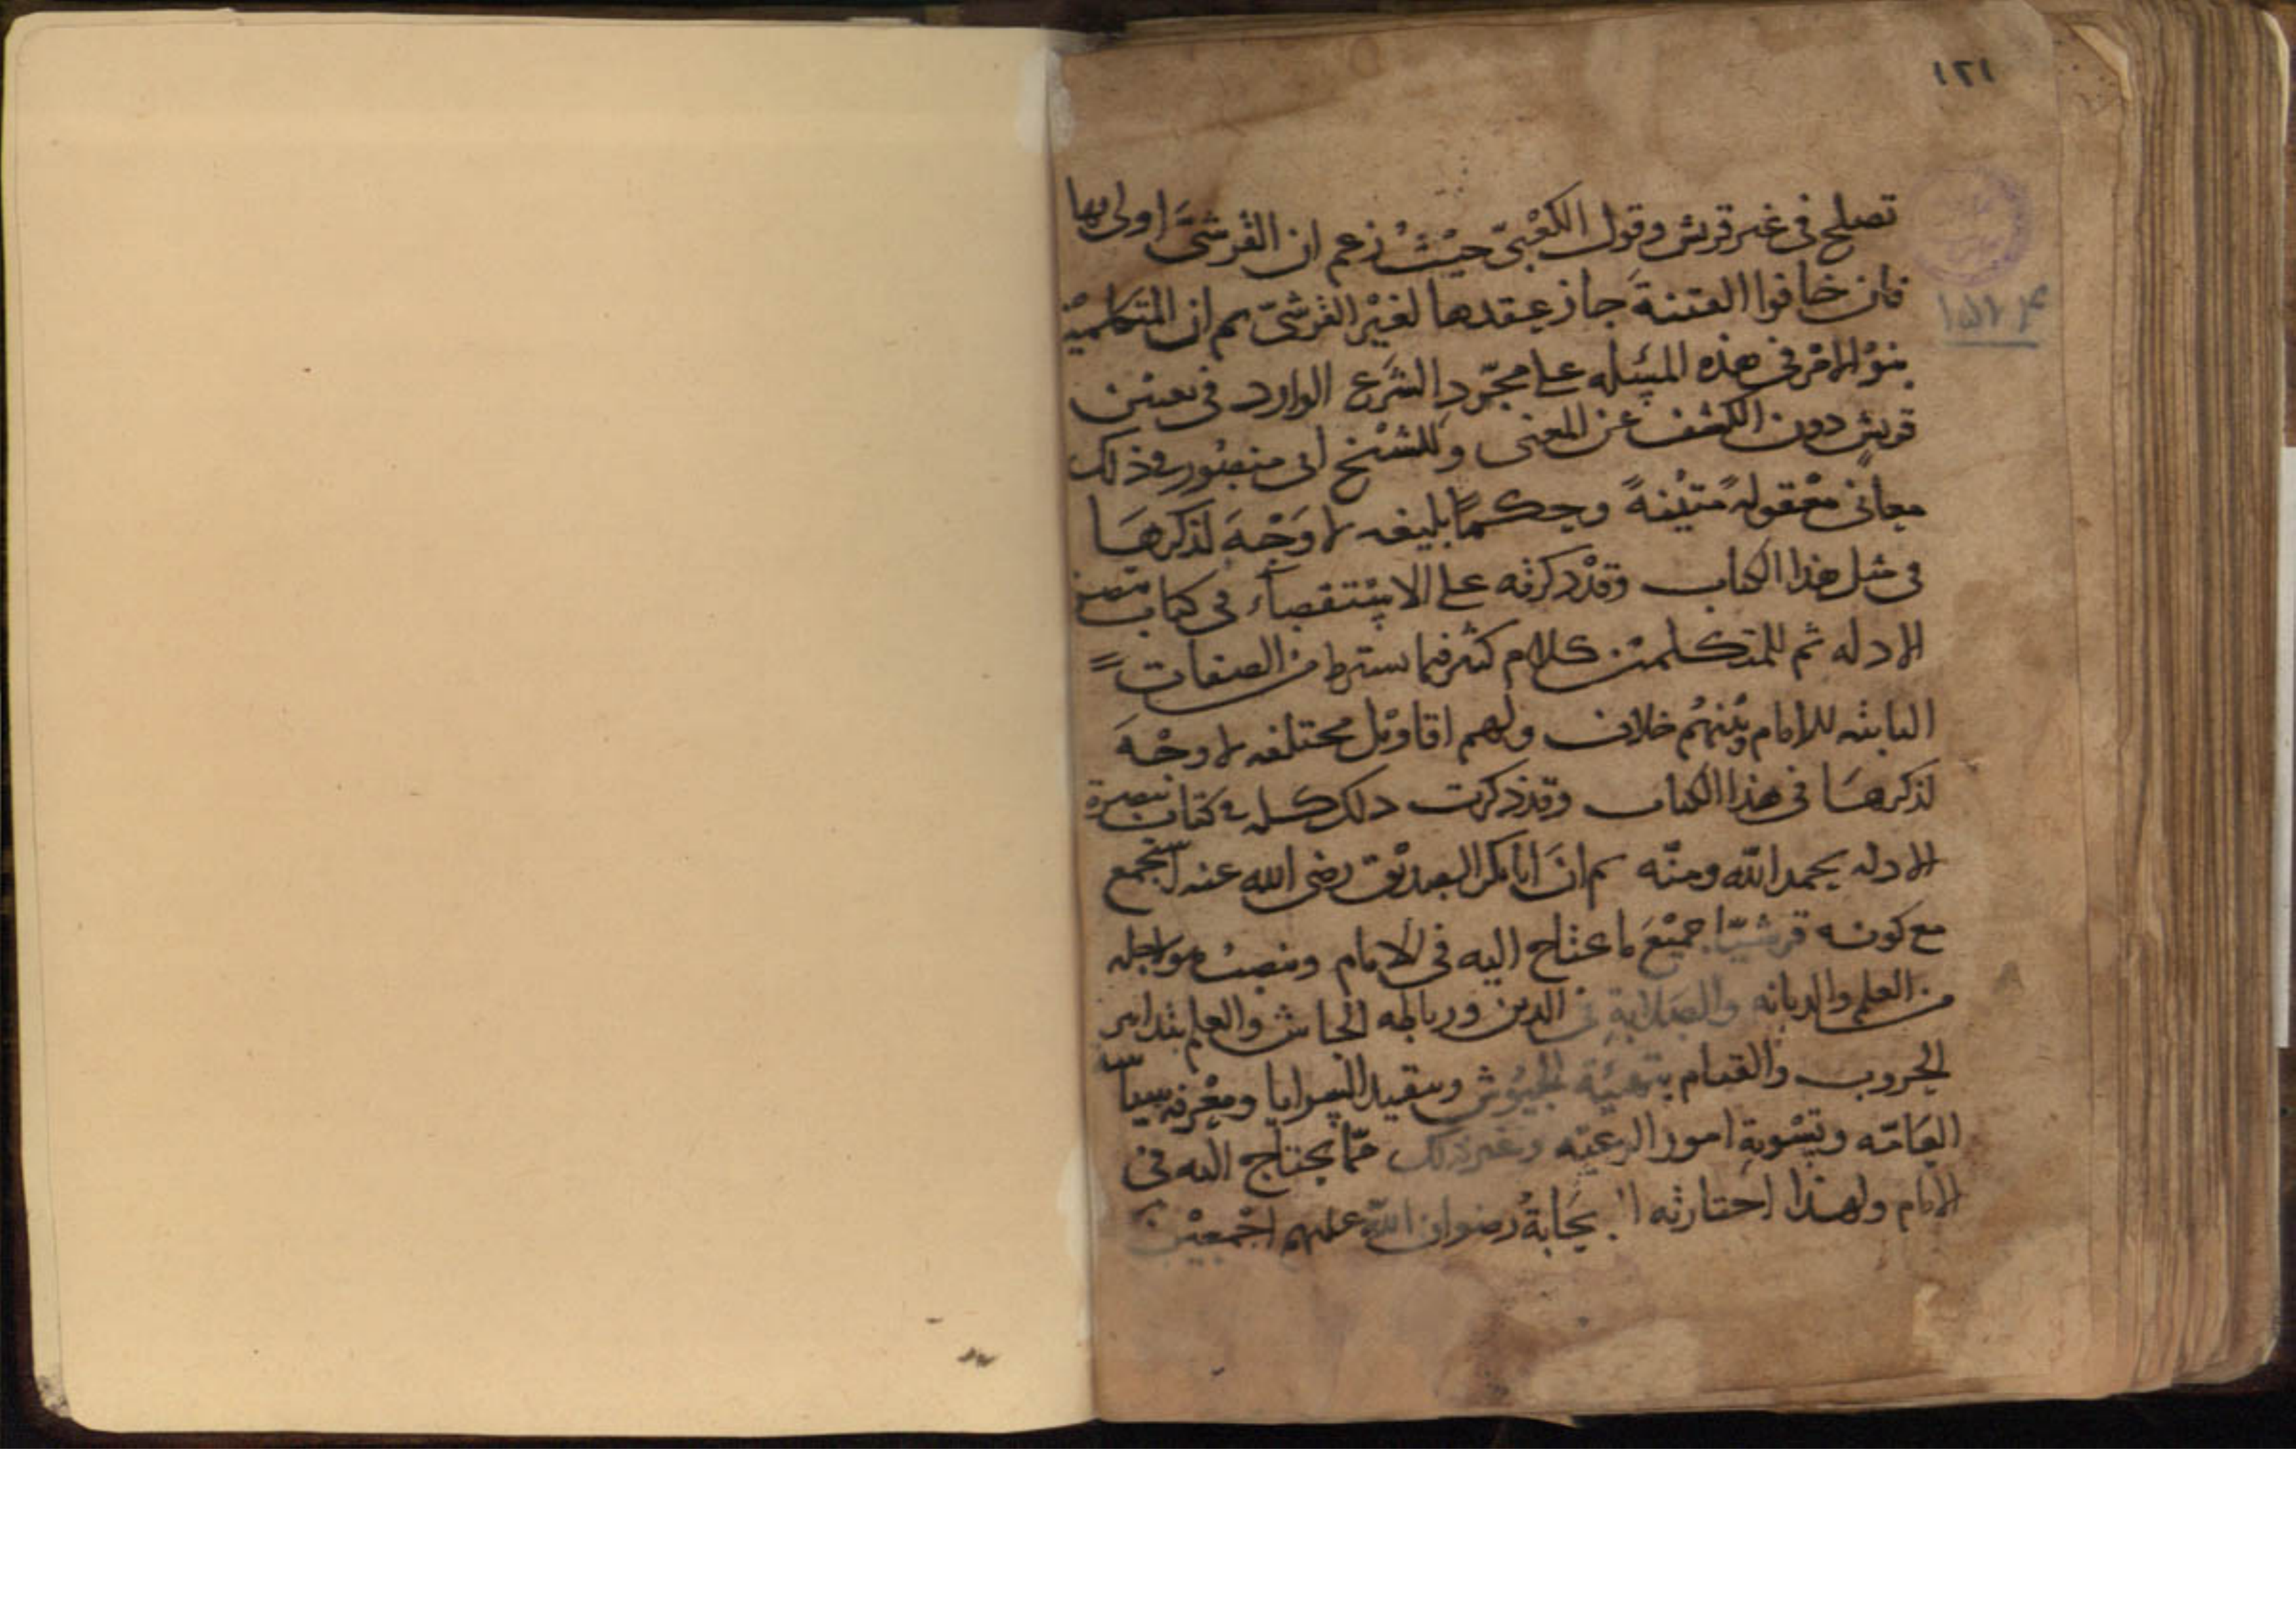 ١٢١
تصلح فى غير قريش وقول الكعْبىّ حيْثُ زعم ان القرشىَّ اولى بها
فان خافوا الفتنةَ جاز عقدها لغيْر القرشىّ ثم ان المتكلمين
بنوْ الامْر فى هذه المسئله على مجرّدِ الشرَع الوارد فى تعيين
قريشٍ دون الكشف عن المعنى وللشيْخ ابى منصُور فى ذلك
معانى معْقولةً متيْنةً وحكمًا بليغه لا وَجْهَ لذكرهَا
فى مثل هذا الكتاب وقدْ ذكرته على الاسْتقصاء فى كتاب تبصرة
الادله ثم للمتكلمين كلام كثير فيما يشترط من الصفات
الثابته للامام وبيْنهُم خلاف ولهم اقاويْل مختلفه لا وجْهَ
لذكرهَا فى هذا الكتاب وقدْ ذكرت ذلك كله فى كتاب تبصرة
الادله بحمد اللّه ومنّه ثم انَ ابابكر الصديْق رضى الله عنه استجمع
مع كونه قرشيّا جميْعَ ما يحتاج اليه فى الامام وينصبُ هو لاجله
من العلم والديانه والصَلابةِ فى الدين ورباطه الجاش والعلم بتدابير
الحروب والقيام بتهيئة الجيُوش وتنفيذ السرايا ومعْرفه سياسة
العَامّه وتسْويةِ امور الرعيّه وغير ذلك ممّا يحتاج اليه فى
الامام ولهذا اختارته الصحَابةُ رضوان اللّه عليهم اجْمعيْن